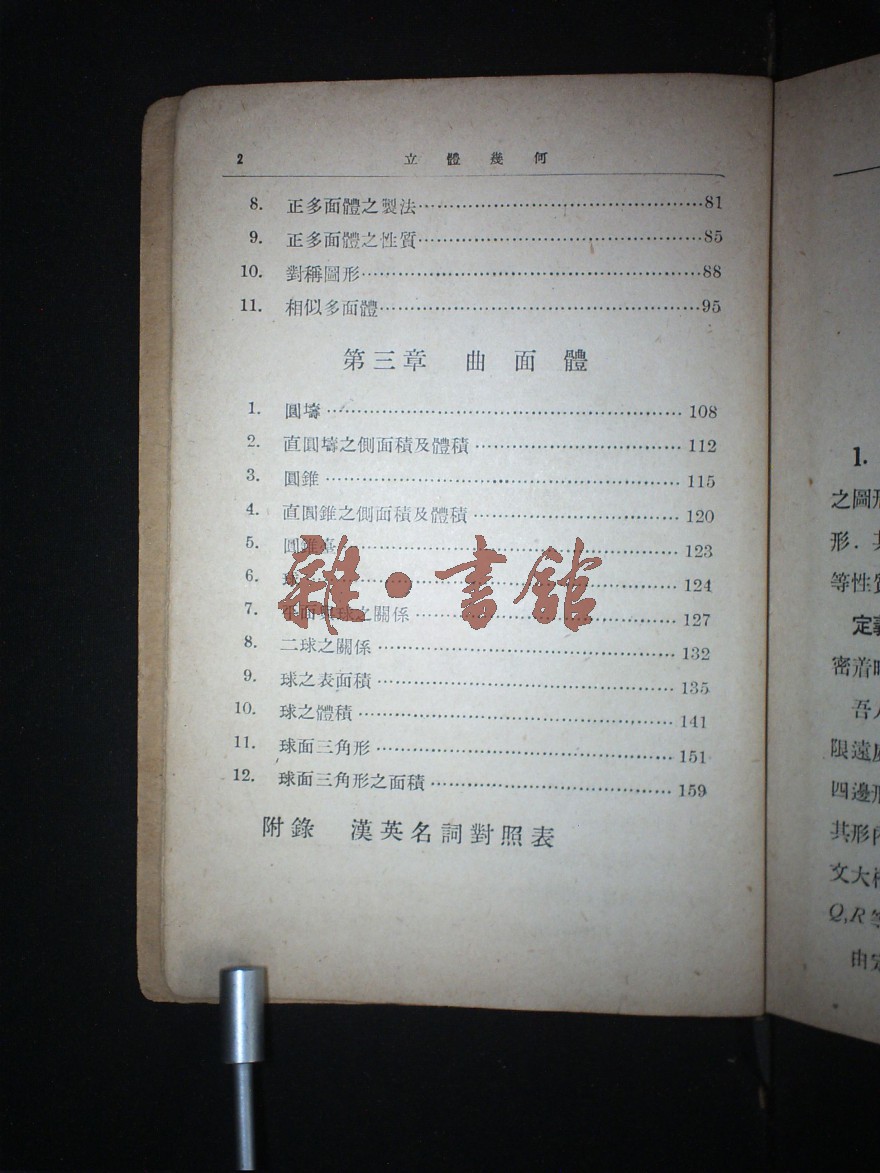 2 立體幾何
8. 正多面體之製法 81
9. 正多面體之性質 85
10. 對稱圖形 88
11. 相似多面體 95
第三章 曲面體
1. 圓壔 108
2. 直圓壔之側面積及體積 112
3. 圓錐 115
4. 直圓錐之側面積及體積 120
5. 圓錐臺 123
6. 球 124
7. 平面與球之關係 127
8. 二球之關係 132
9. 球之表面積 135
10. 球之體積 141
11. 球面三角形 151
12. 球面三角形之面積 159
附錄 漢英名詞對照表
雜·書館
1.
之圖形
形．
等性質
定義
密着
吾
限遠
四邊形
其形內
文大
Q,R等
由定